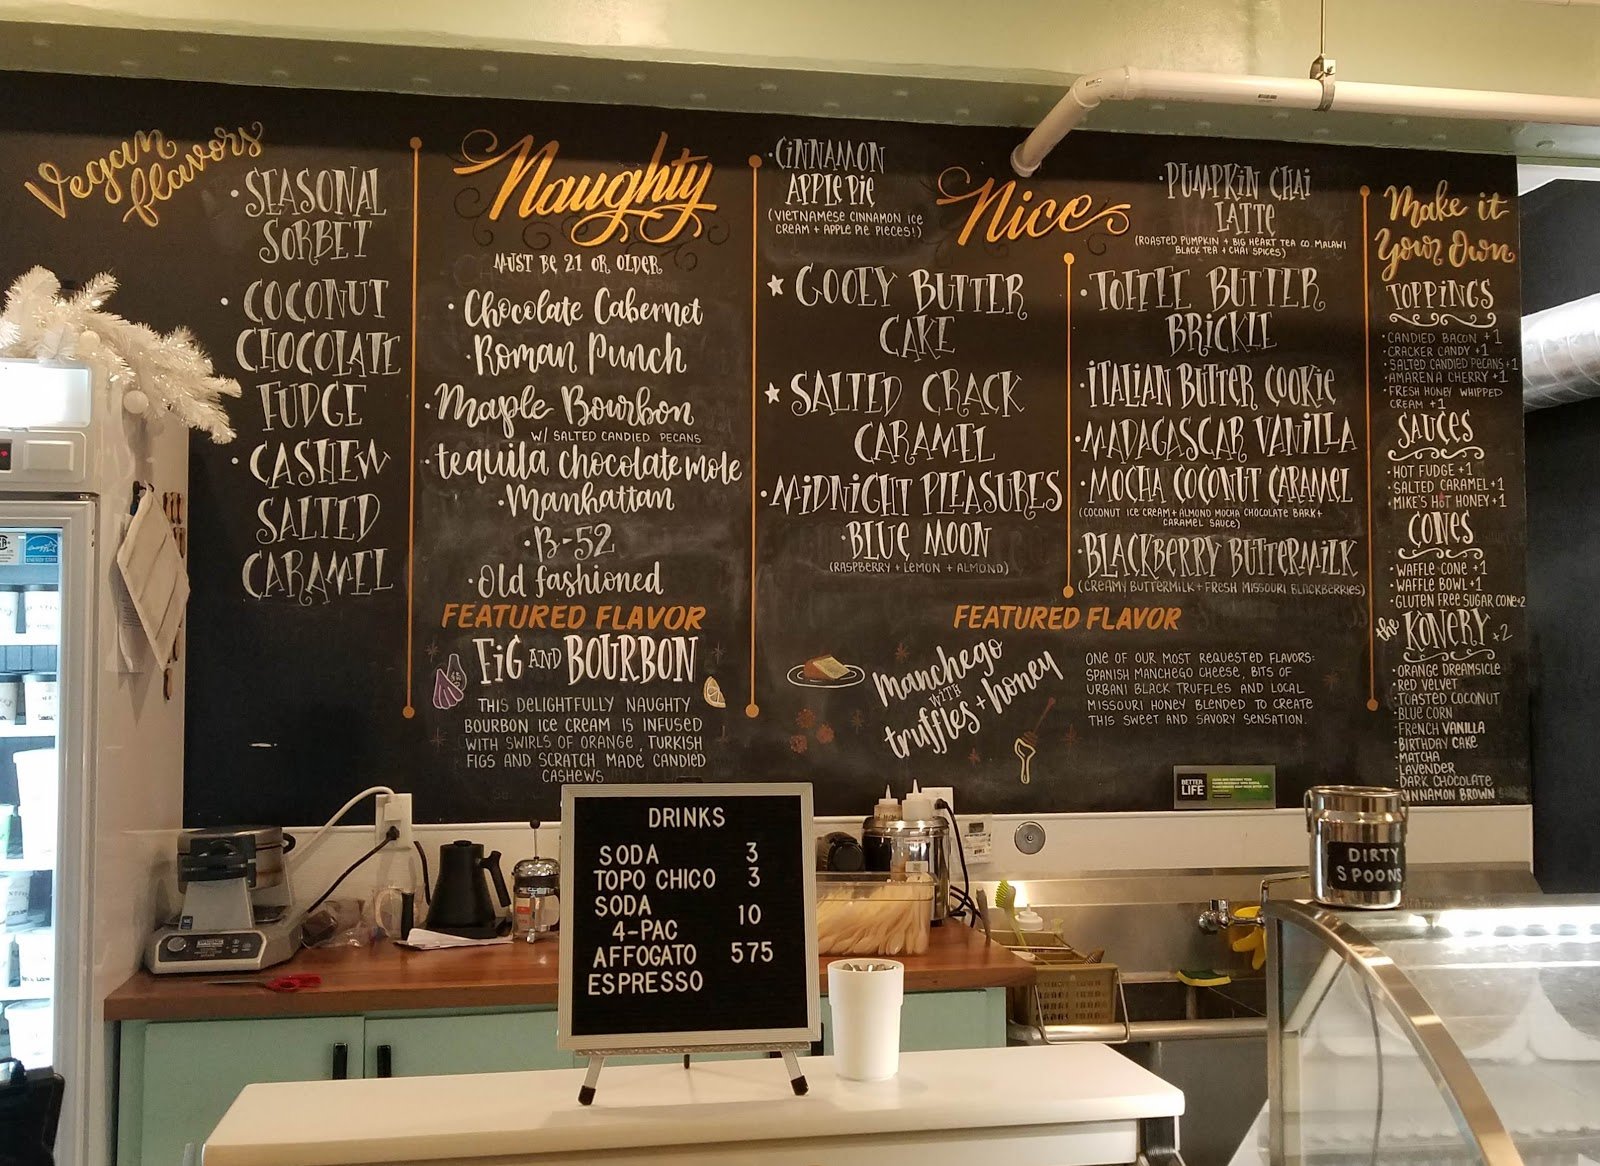 Vegan
flavors
• SEASONAL
SORBET
• COCONUT
CHOCOLATE
FUDGE
• CASHEW
SALTED
CARAMEL
Naughty
MUST BE 21 OR OLDER
• Chocolate Cabernet
• Roman Punch
• Maple Bourbon
W/ SALTED CANDIED PECANS
• tequila chocolate mole
• Manhattan
• B-52
• Old fashioned
FEATURED FLAVOR
FIG AND BOURBON
THIS DELIGHTFULLY NAUGHTY
BOURBON ICE CREAM IS INFUSED
WITH SWIRLS OF ORANGE, TURKISH
FIGS AND SCRATCH MADE CANDIED
CASHEWS
Nice
• CINNAMON
APPLE PIE
(VIETNAMESE CINNAMON ICE
CREAM + APPLE PIE PIECES!)
★ GOOEY BUTTER
CAKE
★ SALTED CRACK
CARAMEL
• MIDNIGHT PLEASURES
• BLUE MOON
(RASPBERRY + LEMON + ALMOND)
• PUMPKIN CHAI
LATTE
(ROASTED PUMPKIN + BIG HEART TEA CO. MALAWI
BLACK TEA + CHAI SPICES)
• TOFFEE BUTTER
BRICKLE
• ITALIAN BUTTER COOKIE
• MADAGASCAR VANILLA
• MOCHA COCONUT CARAMEL
(COCONUT ICE CREAM + ALMOND MOCHA CHOCOLATE BARK +
CARAMEL SAUCE)
• BLACKBERRY BUTTERMILK
(CREAMY BUTTERMILK + FRESH MISSOURI BLACKBERRIES)
FEATURED FLAVOR
Manchego
WITH
truffles + honey
ONE OF OUR MOST REQUESTED FLAVORS:
SPANISH MANCHEGO CHEESE, BITS OF
URBANI BLACK TRUFFLES AND LOCAL
MISSOURI HONEY BLENDED TO CREATE
THIS SWEET AND SAVORY SENSATION.
Make it
Your Own
TOPPINGS
• CANDIED BACON +1
• CRACKER CANDY +1
• SALTED CANDIED PECANS +1
• AMARENA CHERRY +1
• FRESH HONEY WHIPPED
CREAM +1
SAUCES
• HOT FUDGE +1
• SALTED CARAMEL +1
• MIKE'S HOT HONEY +1
CONES
• WAFFLE CONE +1
• WAFFLE BOWL +1
• GLUTEN FREE SUGAR CONE +2
the KONERY +2
• ORANGE DREAMSICLE
• RED VELVET
• TOASTED COCONUT
• BLUE CORN
• FRENCH VANILLA
• BIRTHDAY CAKE
• MATCHA
• LAVENDER
• DARK CHOCOLATE
CINNAMON BROWN
BETTER
LIFE
DRINKS
SODA 3
TOPO CHICO 3
SODA
4-PAC 10
AFFOGATO 575
ESPRESSO
DIRTY
SPOONS